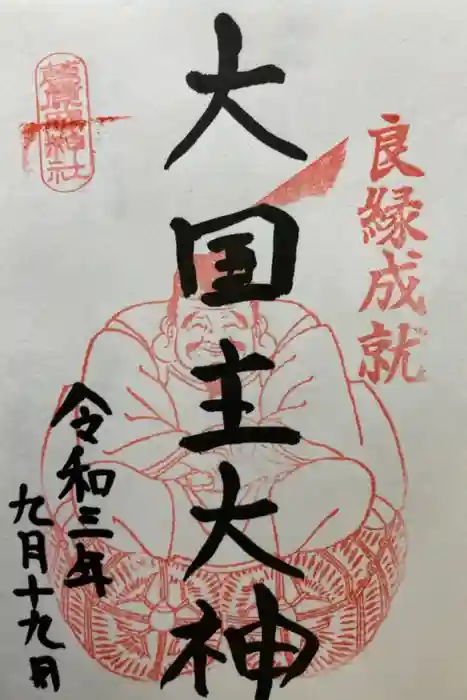 良縁成就
大国主大神
令和三年
九月十九月